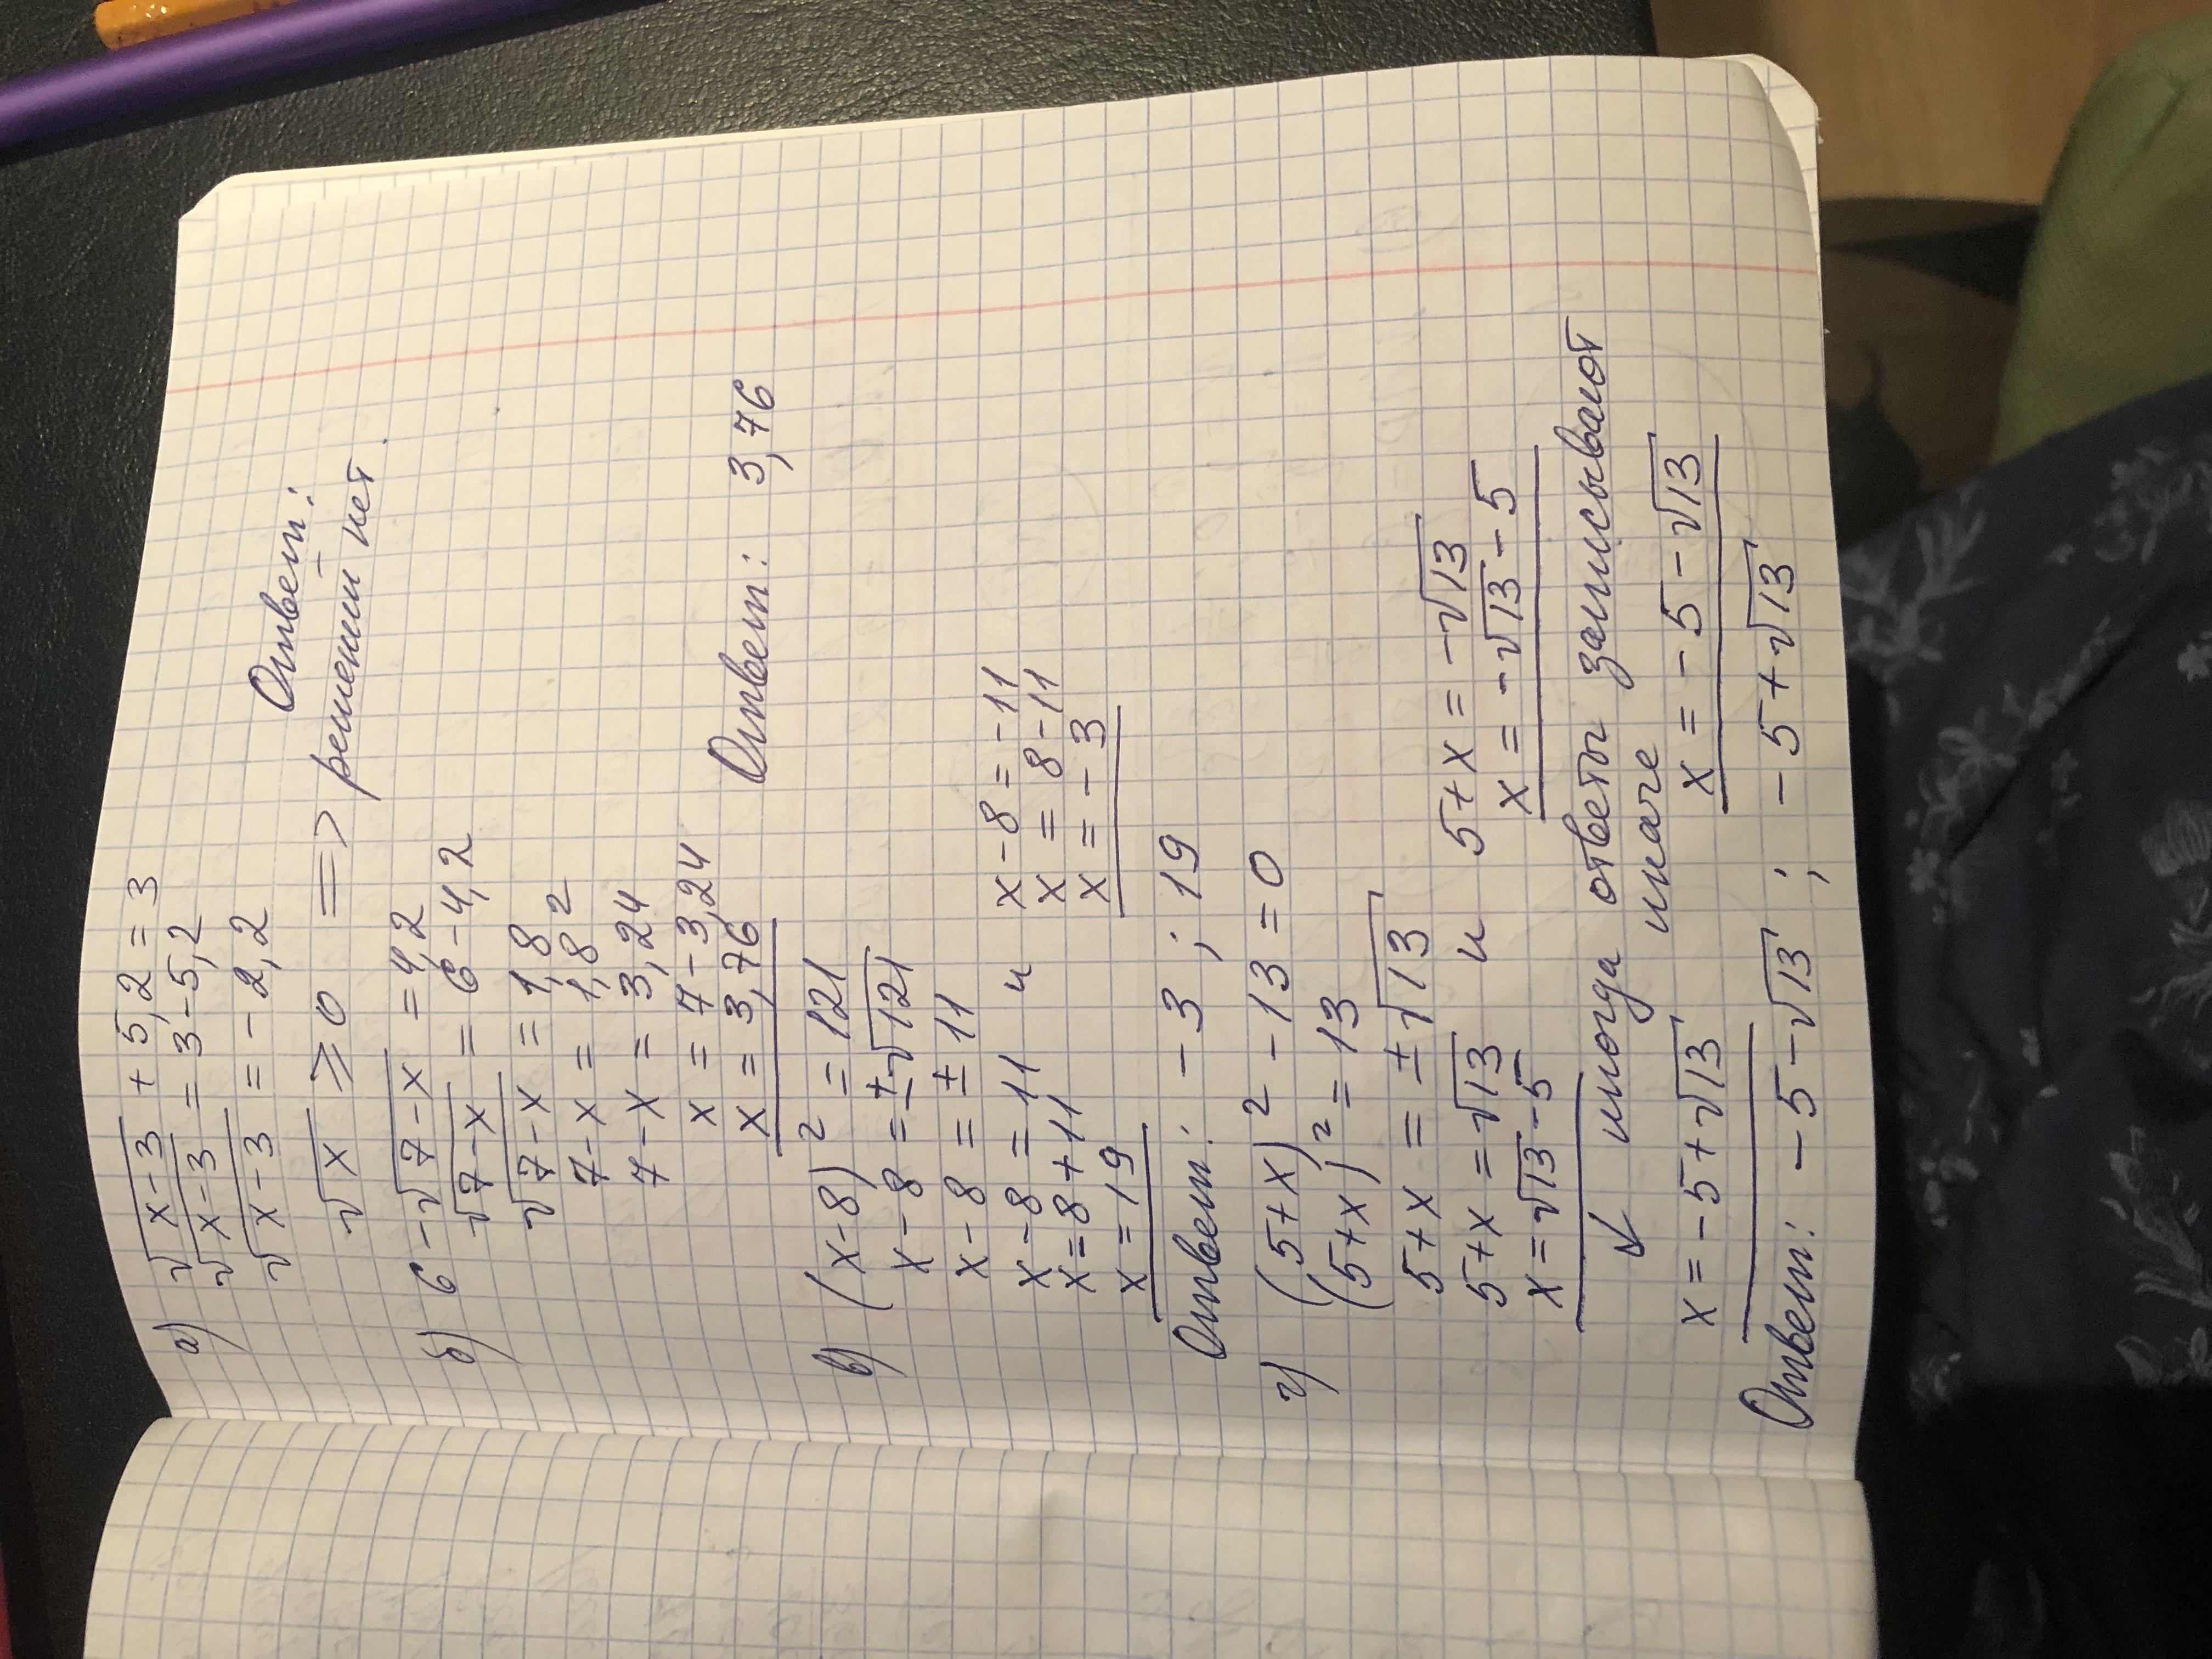 а) √x-3 + 5,2 = 3
√x-3 = 3-5,2
√x-3 = -2,2
Ответ:
√x ⩾ 0 => решений нет.
б) 6-√7-x = 4,2
√7-x = 6-4,2
√7-x = 1,8
7-x = 1,8²
7-x = 3,24
x = 7-3,24
x = 3,76
Ответ: 3,76
в) (x-8)² = 121
x-8 = ±√121
x-8 = ±11
x-8 = 11 и x-8 = -11
x=8+11 x = 8-11
x=19 x = -3
Ответ: -3 ; 19
г) (5+x)² -13 = 0
(5+x)² = 13
5+x = ±√13
5+x = √13 и 5+x = -√13
x=√13-5 x = -√13-5
↙ иногда ответы записывают
иначе
x = -5+√13 x = -5-√13
Ответ: -5-√13 ; -5+√13